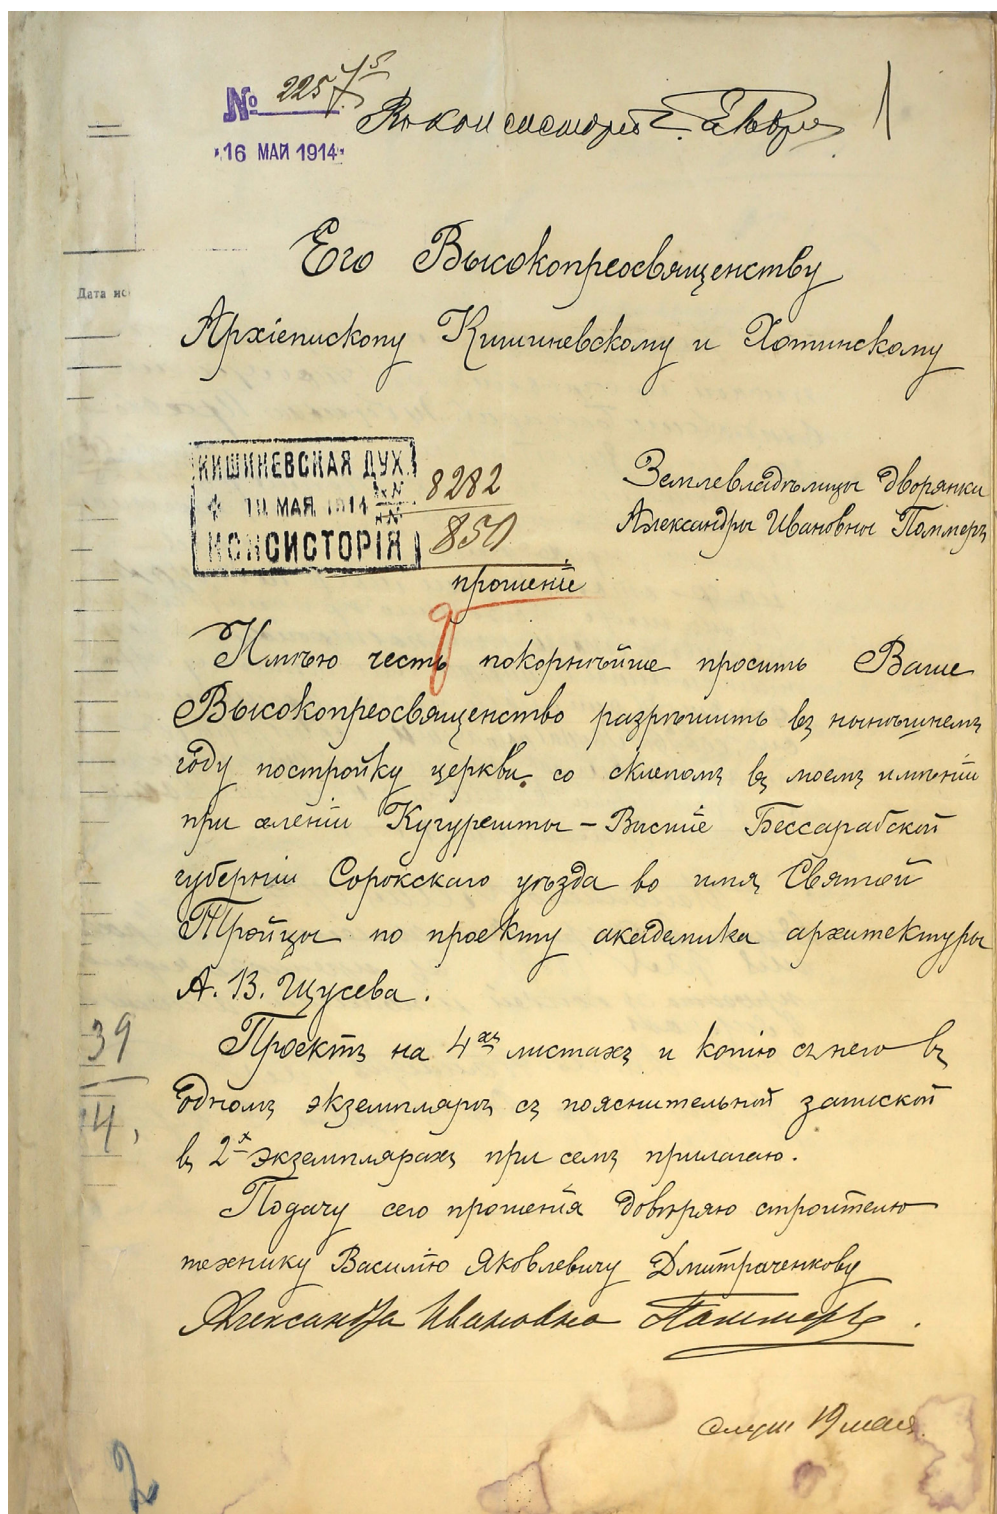 № 2257
16 МАЙ 1914
Въ консисторію
1
Его Высокопреосвященству
Дата ис
Архіепископу Кишиневскому и Хотинскому
КИШИНЕВСКАЯ ДУХ.
МАЯ 1914
КОНСИСТОРІЯ
8282
850
Землевладѣлицы дворянки
Александры Ивановны Поммеръ
прошеніе
Имѣю честь покорнѣйше просить Ваше
Высокопреосвященство разрѣшить въ нынѣшнемъ
году постройку церкви со склепомъ въ моемъ имѣніи
при селеніи Кугурешты – Висше Бессарабской
губерніи Сорокскаго уѣзда во имя Святой
Тройцы по проекту академика архитектуры
А. В. Щусева.
Проектъ на 4хъ листахъ и копію съ него въ
39
одномъ экземплярѣ съ пояснительной запиской
14,
въ 2х экземплярахъ при семъ прилагаю.
Подачу сего прошенія довѣряю строителю
технику Василію Яковлевичу Дмитраченкову
Александра Ивановна Поммеръ.
19 мая
2